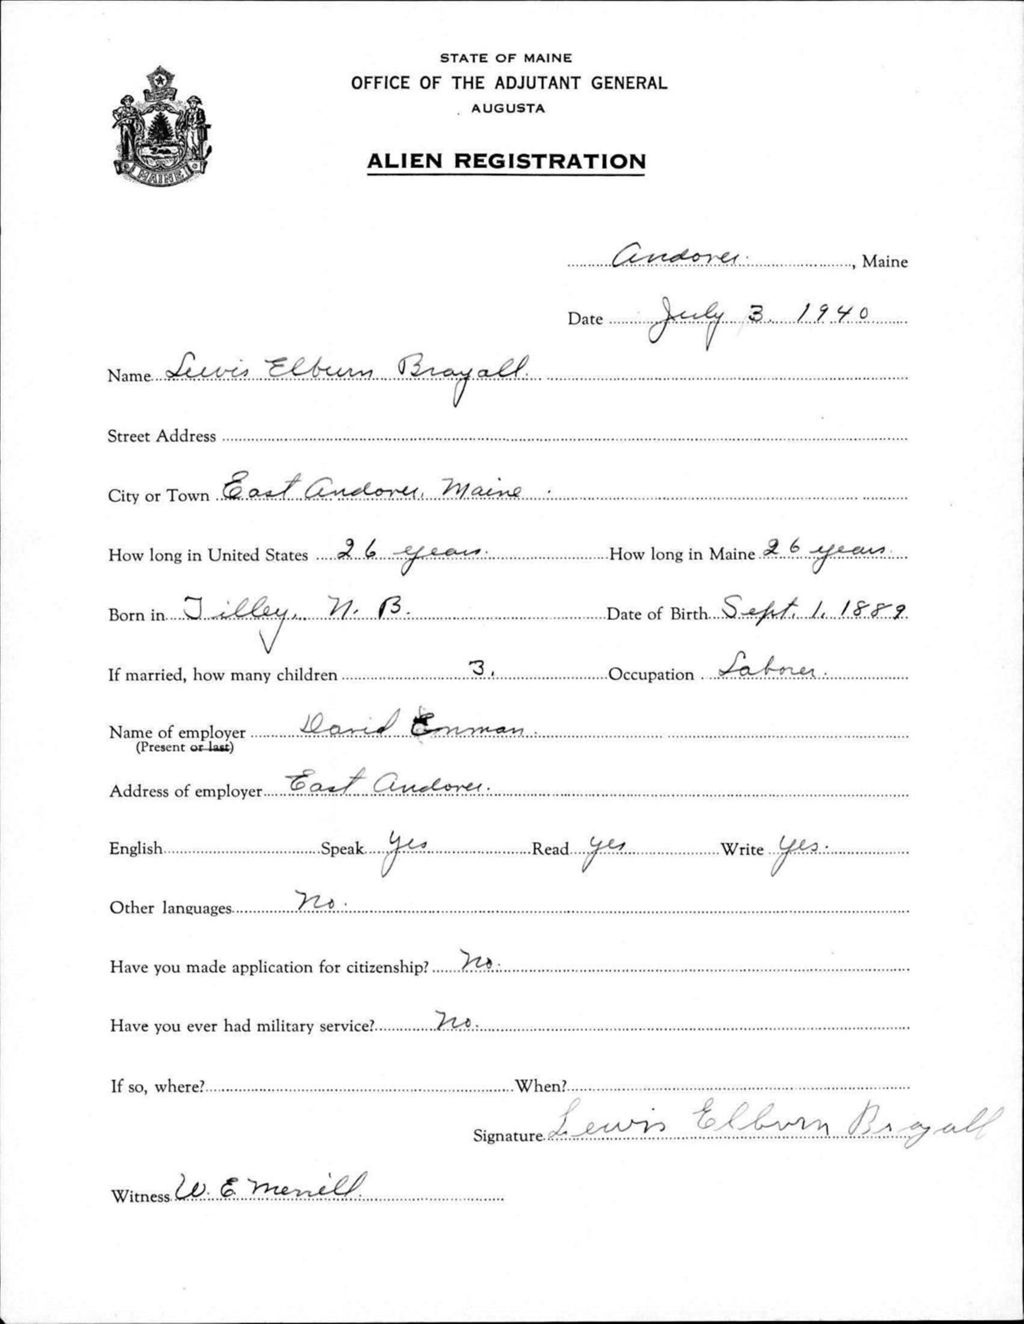 STATE OF MAINE
OFFICE OF THE ADJUTANT GENERAL
AUGUSTA
ALIEN REGISTRATION
MAINE
Andover, Maine
Date July 3. 1940
Name Lewis Elburn Brayall
Street Address
City or Town East Andover, Maine
How long in United States 26 years. How long in Maine 26 years
Born in Tilley, N. B. Date of Birth Sept. 1, 1889
If married, how many children 3. Occupation Laborer.
Name of employer David Enman.
(Present or last)
Address of employer East Andover.
English Speak yes Read yes Write yes.
Other languages No.
Have you made application for citizenship? No.
Have you ever had military service? No.
If so, where? When?
Signature Lewis Elburn Brayall
Witness W. E. Merrill